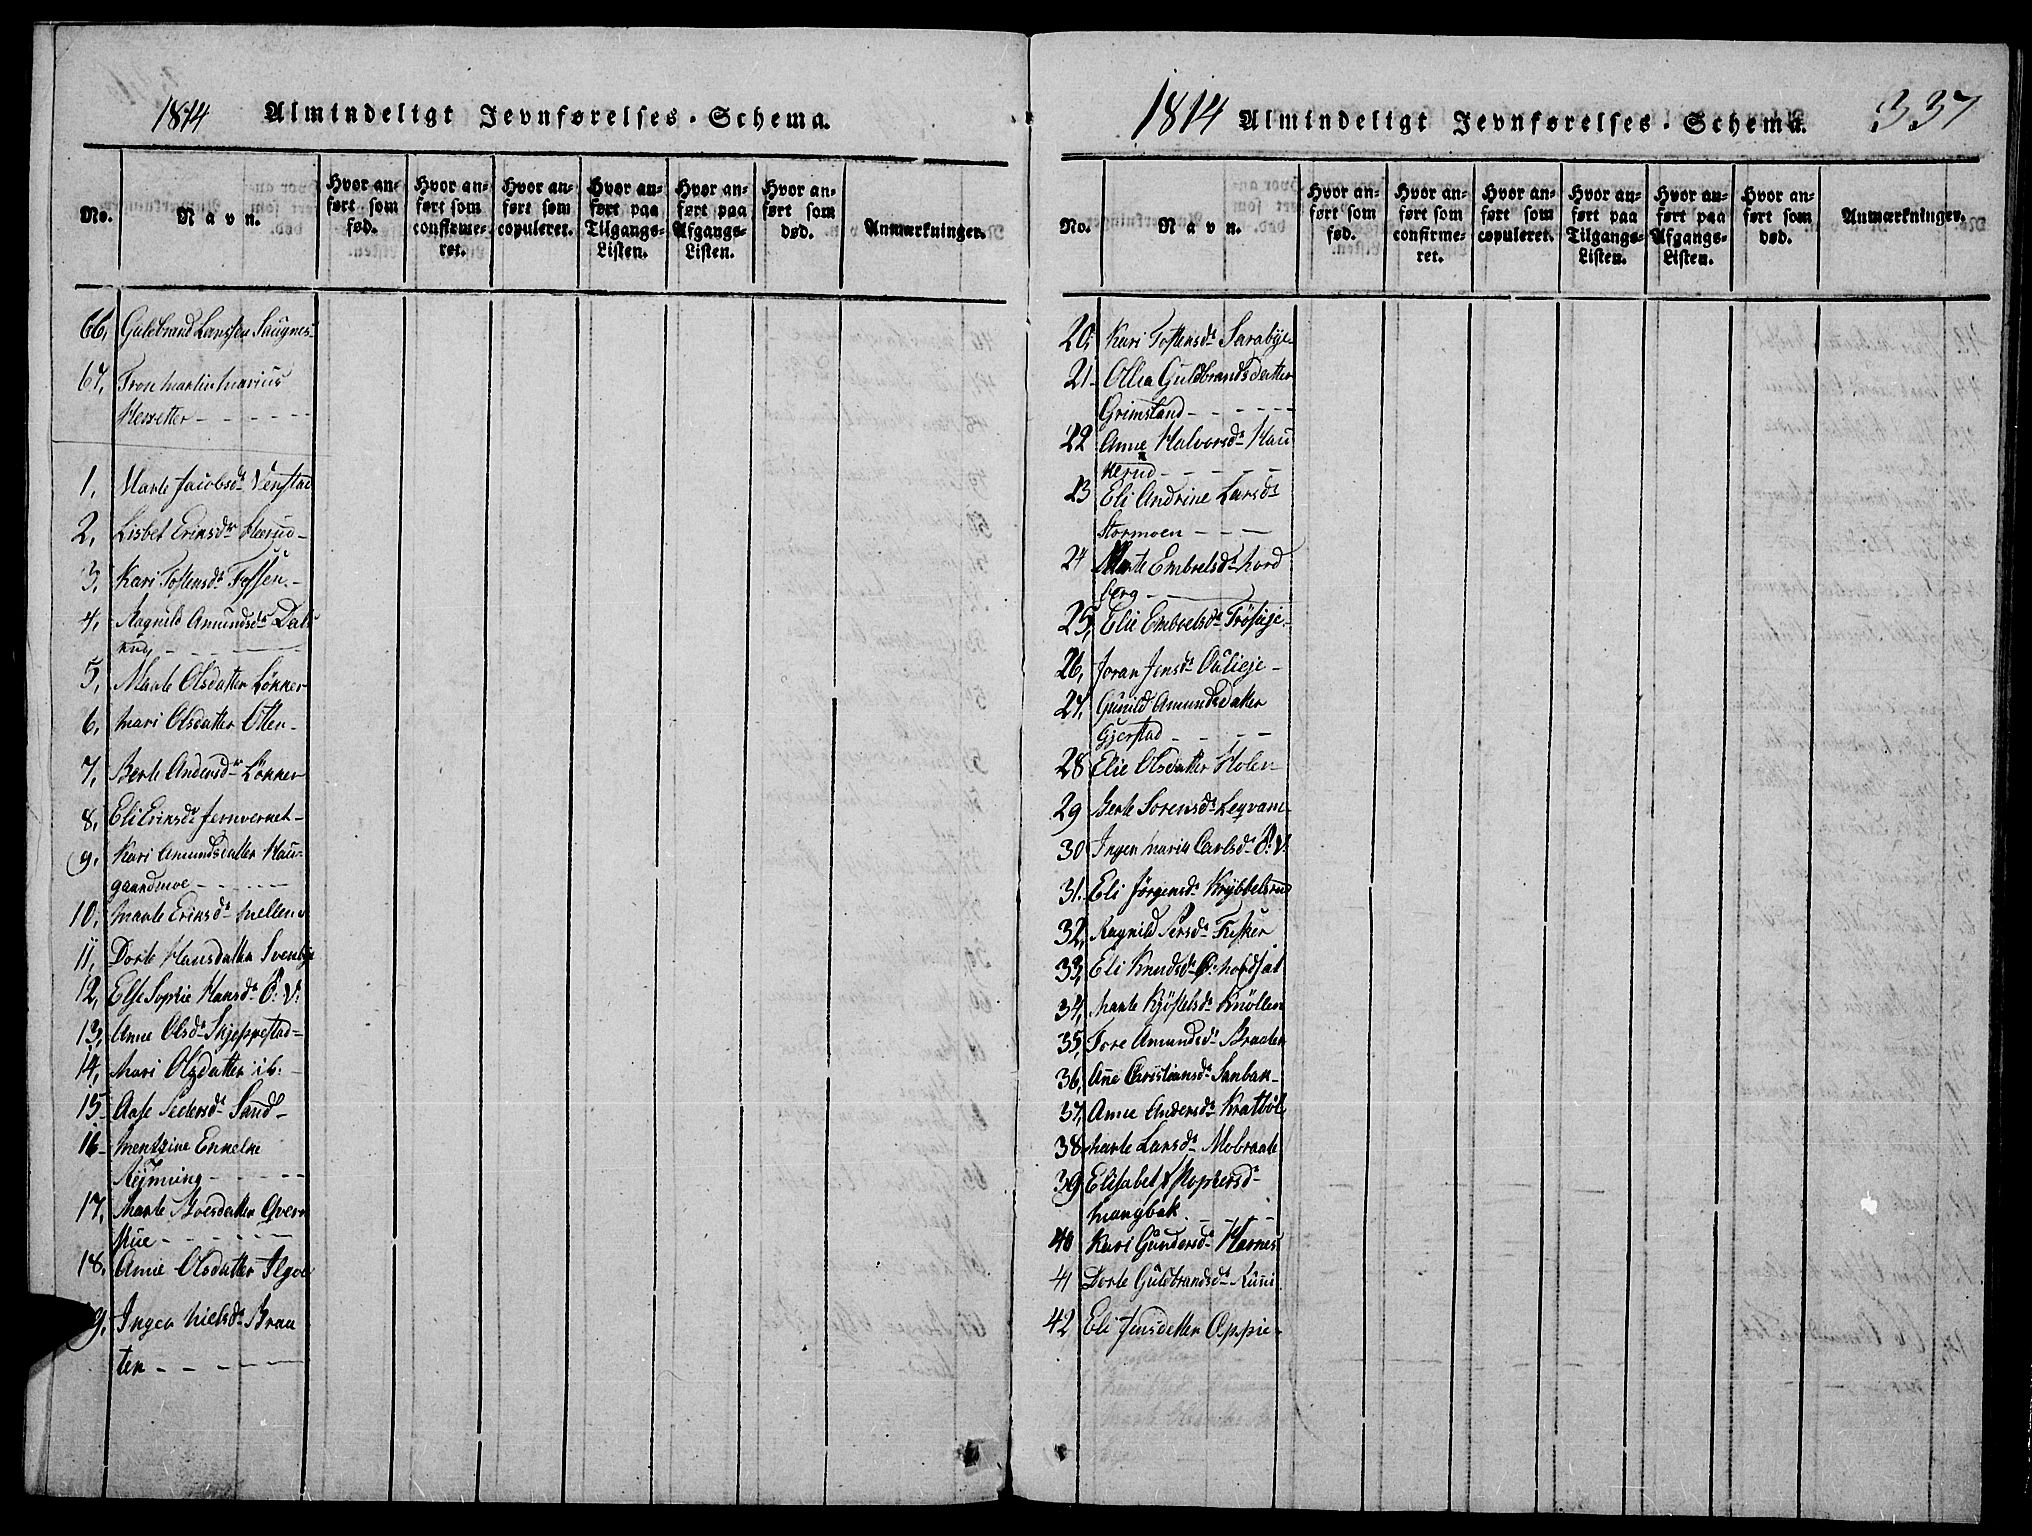 1814 Almindeligt Jevnførelses-Schema.
No. Navn. Hvor anført som fød. Hvor anført som confirmeret. Hvor anført som copuleret. Hvor anført paa Tilgangs-Listen. Hvor anført paa Afgangs-Listen. Hvor anført som død. Anmærkninger.
66, Guldbrand Larssen Saugnes
67, Martin Marius
1, Marte Jacobsdr Venstad
2, Lisbet Eriksdr
3, Kari Tostensdr Fossen
4, Ragnild Amundsdr
5, Marte Olsdatter Løkker
6, Mari Olsdatter Otter
7, Berte Andersdr Løkker
8, Eli Eriksdr Jernverket
9, Kari Amundsdatter Hau-
gaardmoe
10, Marte Eriksdr Mellem
11, Dorte Hansdatter Svenbye
12, Else Sophie Hansdr O: V:
13, Anne Olsdr Skjeppestad
14, Mari Olsdatter ib:
15 Aase Pedersdr Sand
16 Mentzine Enkelke
17, Marte Qvern
18, Anne Olsdatter
19, Inger Nielsdr Braa
ten
1814 Almindeligt Jevnførelses-Schema. 337
No. Navn. Hvor anført som fød. Hvor anført som confirmeret. Hvor anført som copuleret. Hvor anført paa Tilgangs-Listen. Hvor anført paa Afgangs-Listen. Hvor anført som død. Anmærkninger.
20, Kari Tostensdr Sarabye
21 Ollea Guldbrandsdatter
Grimsland
22 Anne Halvorsdr Hau
kerud
23 Eli Andrine Larsdr
Stormoen
24 Marte Embretsdr Nord
berg
25, Elie Embretsdr
26, Joran Jensdr Oulieje
27, Gunild Amundsdatter
Gjerstad
28 Elie Olsdatter Holen
29 Berte Sørensdr
30 Inger Maria Carlsdr O: V:
31. Eli Jørgensdr Krybbelsrud
32, Ragnild Persdr Fisker
33, Eli Knudsdr
34, Marte Kjøstelsdr Knøllen
35, Tore Amundsdr Braaten
36, Ane Christiansdr Sanbak
37, Anne Andersdr Kratbøl
38 Marte Larsdr Mobraate
39 Elisabet
Mangbak
40 Kari Gundersdr Hornes
41 Dorte Guldbrandsdr
42 Eli Jensdatter Oppie